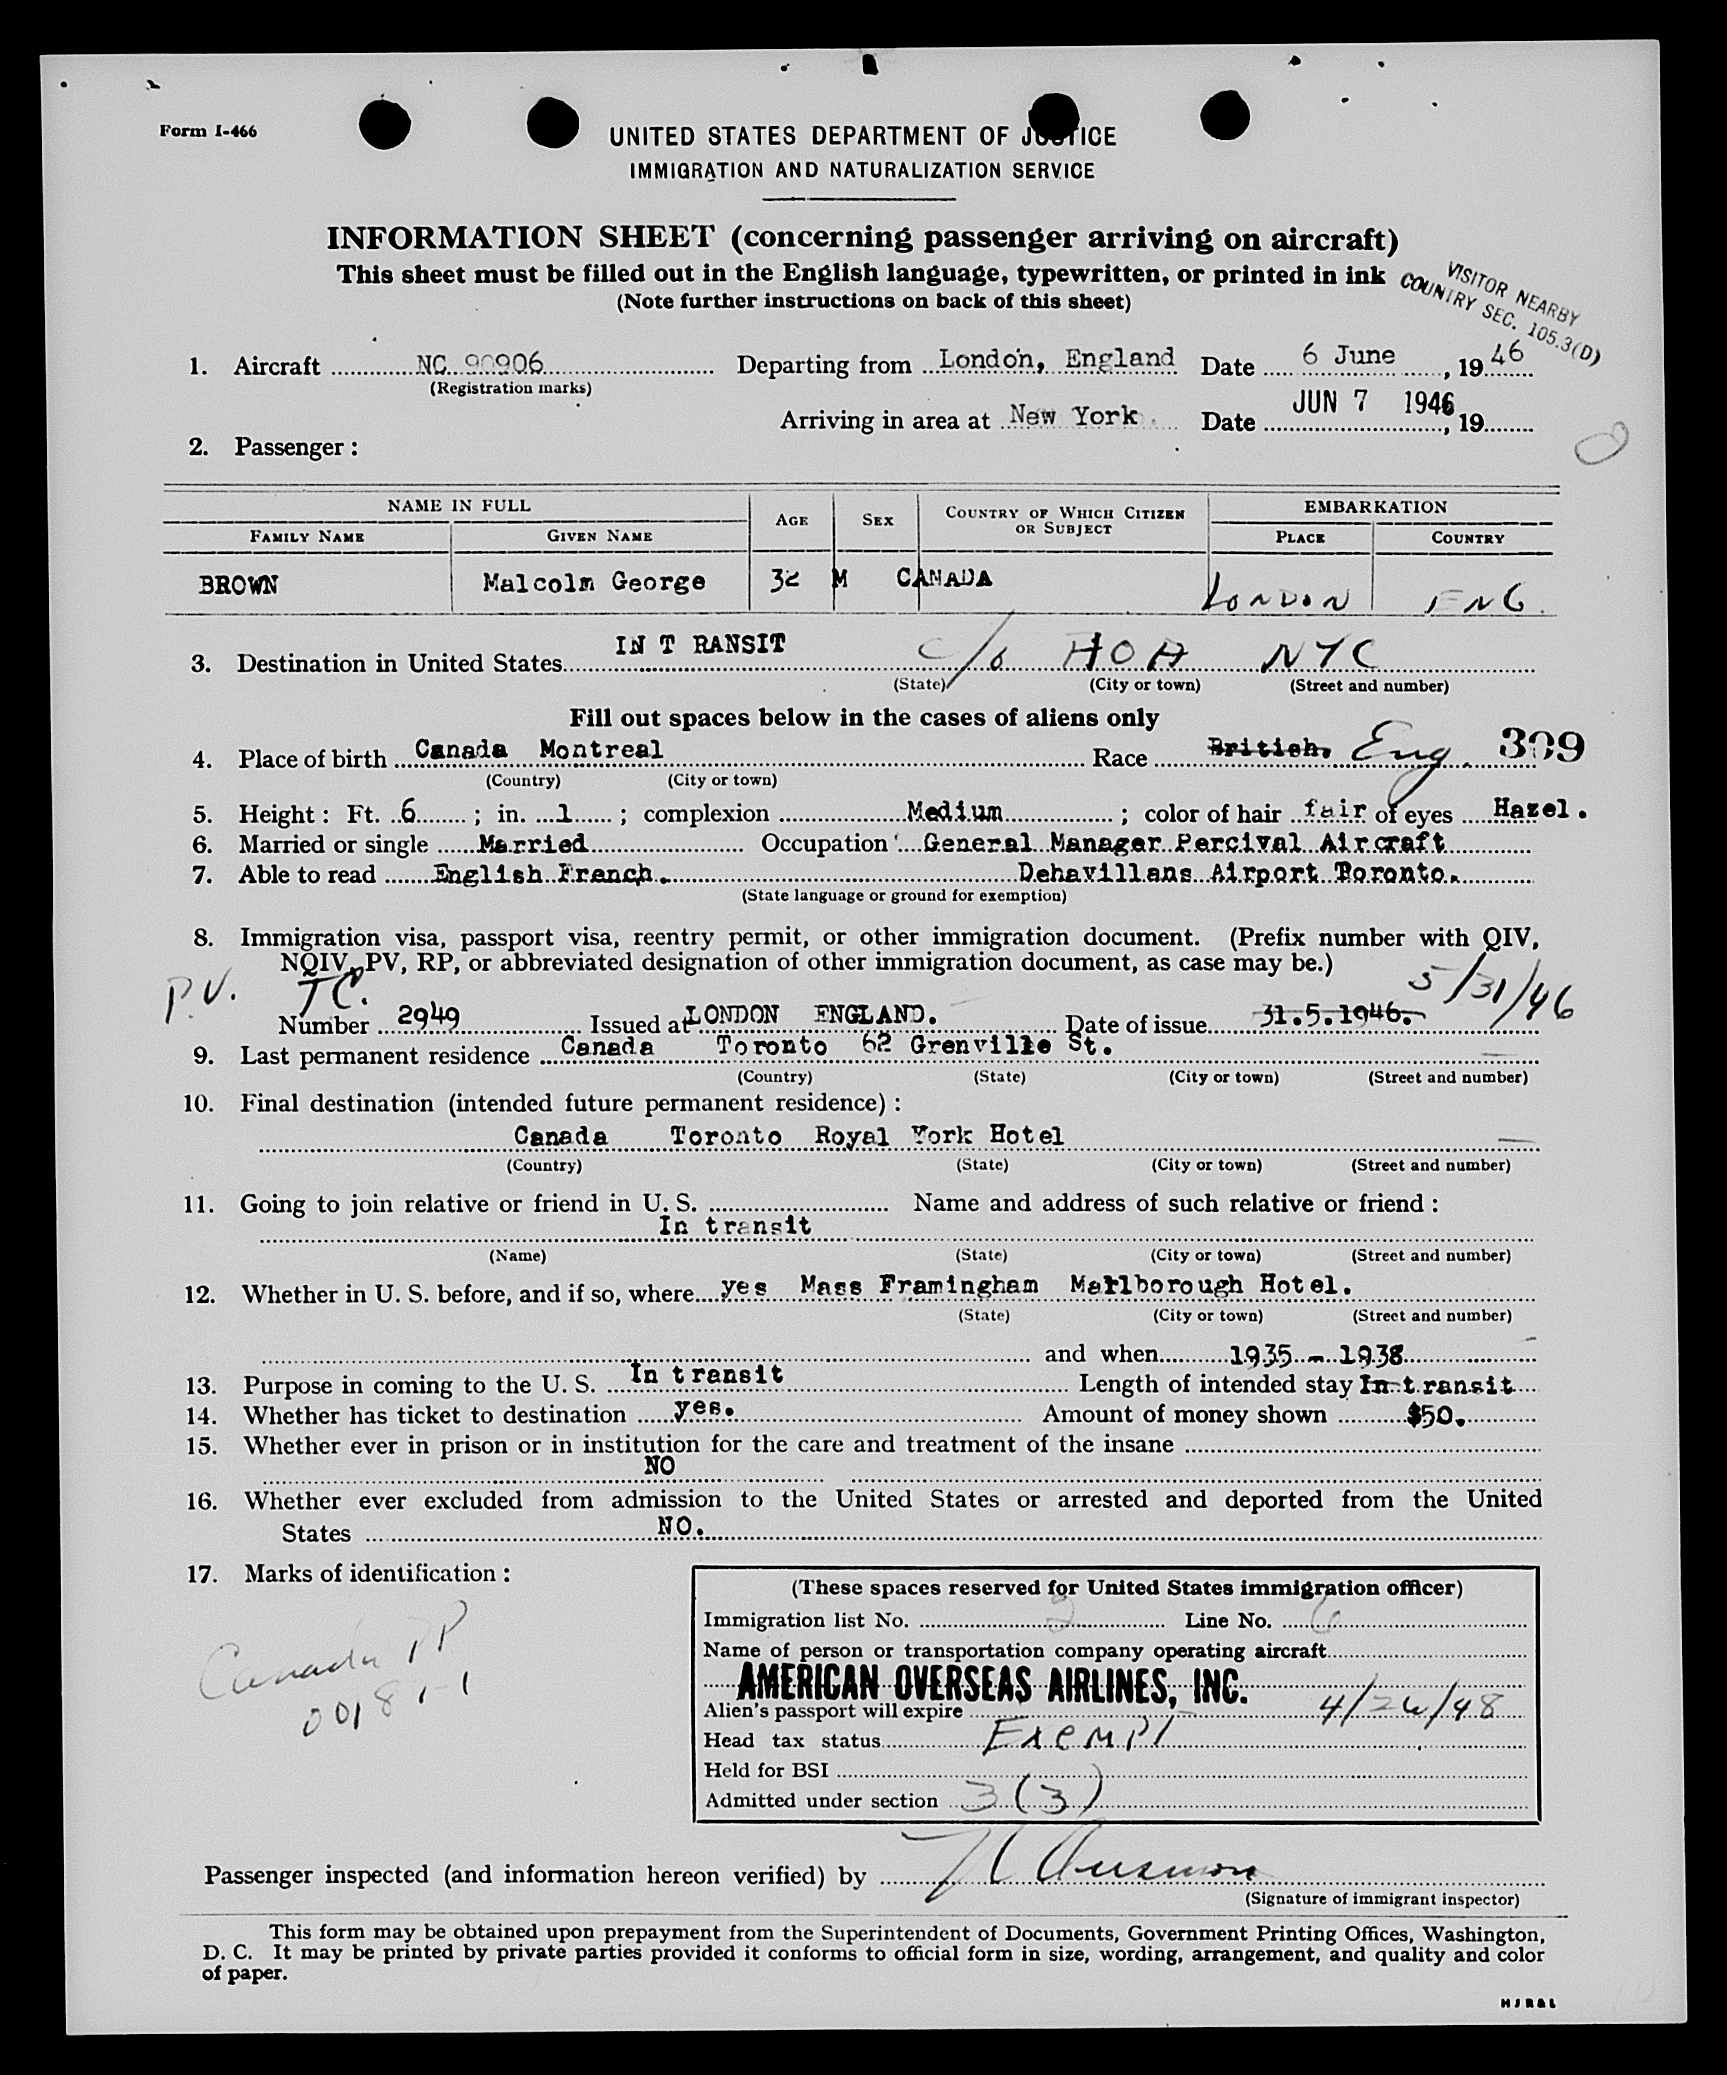 Form I-466
UNITED STATES DEPARTMENT OF JUSTICE
IMMIGRATION AND NATURALIZATION SERVICE
INFORMATION SHEET (concerning passenger arriving on aircraft)
This sheet must be filled out in the English language, typewritten, or printed in ink
(Note further instructions on back of this sheet)
VISITOR NEARBY
COUNTRY SEC. 105.3(D)
1. Aircraft NC 90906 Departing from London, England Date 6 June, 1946
(Registration marks)
Arriving in area at New York Date JUN 7 1946, 19
2. Passenger:
NAME IN FULL AGE SEX COUNTRY OF WHICH CITIZEN OR SUBJECT EMBARKATION
FAMILY NAME GIVEN NAME PLACE COUNTRY
BROWN Malcolm George 32 M CANADA LONDON ENG.
3. Destination in United States IN T RANSIT c/o AOA NYC
(State) (City or town) (Street and number)
Fill out spaces below in the cases of aliens only
4. Place of birth Canada Montreal Race British. Eng. 309
(Country) (City or town)
5. Height: Ft. 6; in. 1; complexion Medium; color of hair fair of eyes Hazel.
6. Married or single Married Occupation General Manager Percival Aircraft
7. Able to read English French. Dehavillans Airport Toronto.
(State language or ground for exemption)
8. Immigration visa, passport visa, reentry permit, or other immigration document. (Prefix number with QIV,
NQIV, PV, RP, or abbreviated designation of other immigration document, as case may be.)
P.V. TC. 5/31/46
Number 2949 Issued at LONDON ENGLAND. Date of issue 31.5.1946.
9. Last permanent residence Canada Toronto 62 Grenville St.
(Country) (State) (City or town) (Street and number)
10. Final destination (intended future permanent residence):
Canada Toronto Royal York Hotel
(Country) (State) (City or town) (Street and number)
11. Going to join relative or friend in U. S. Name and address of such relative or friend:
In transit
(Name) (State) (City or town) (Street and number)
12. Whether in U. S. before, and if so, where yes Mass Framingham Marlborough Hotel.
(State) (City or town) (Street and number)
and when 1935 - 1938
13. Purpose in coming to the U. S. In transit Length of intended stay In transit
14. Whether has ticket to destination yes. Amount of money shown $50.
15. Whether ever in prison or in institution for the care and treatment of the insane
NO
16. Whether ever excluded from admission to the United States or arrested and deported from the United
States NO.
17. Marks of identification:
Canada PP
00181-1
(These spaces reserved for United States immigration officer)
Immigration list No. 2 Line No. 6
Name of person or transportation company operating aircraft
AMERICAN OVERSEAS AIRLINES, INC.
Alien's passport will expire 4/26/48
Head tax status Exempt
Held for BSI
Admitted under section 3(3)
Passenger inspected (and information hereon verified) by
(Signature of immigrant inspector)
This form may be obtained upon prepayment from the Superintendent of Documents, Government Printing Offices, Washington,
D. C. It may be printed by private parties provided it conforms to official form in size, wording, arrangement, and quality and color
of paper.